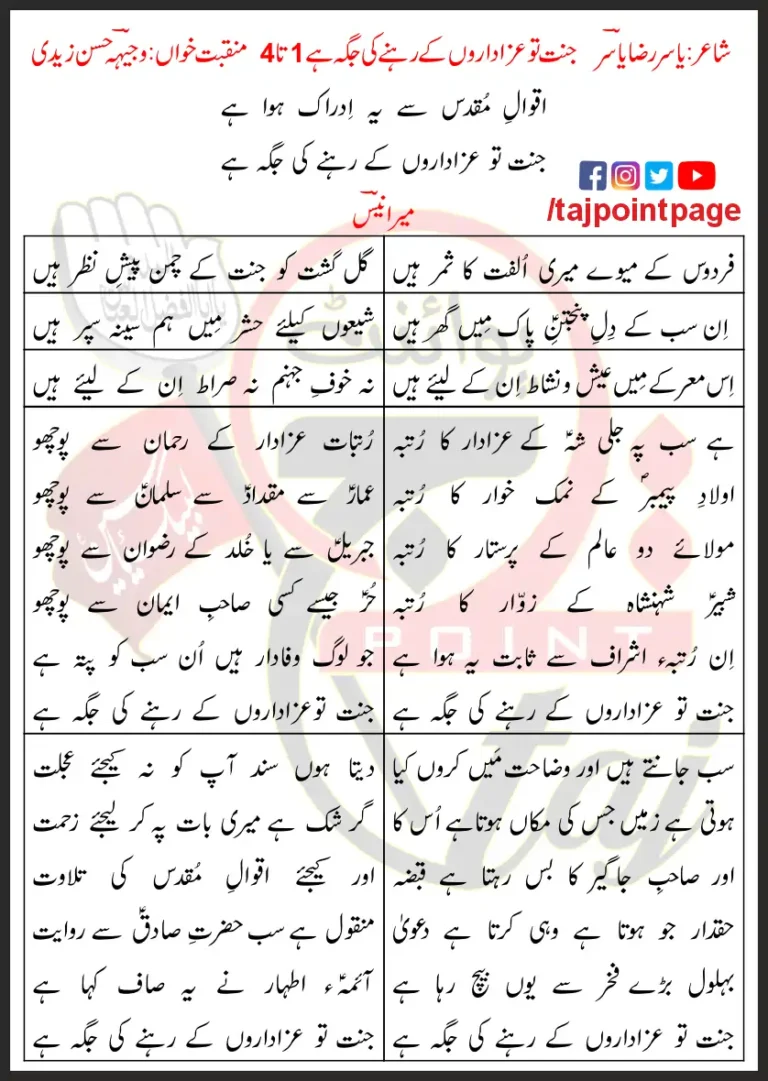 شاعر: یاسر رضا یاسرؔ جنت تو عزاداروں کے رہنے کی جگہ ہے 1 تا 4 منقبت خواں: وجیہہ حسن زیدی
اقوالِ مُقدس سے یہ اِدراک ہوا ہے
جنت تو عزاداروں کے رہنے کی جگہ ہے
/tajpointpage
میر انیسؔ
فردوس کے میوے میری اُلفت کا ثمر ہیں
گل گشت کو جنت کے چمن پیشِ نظر ہیں
اِن سب کے دِلِ پنجتنِؑ پاک مِیں گھر ہیں
شیعوں کیلئے حشر مِیں ہم سینہ سپر ہیں
اِس معرکے مِیں عیش و نشاط اِن کے لیئے ہیں
نہ خوفِ جہنم نہ صراط اِن کے لیئے ہیں
ہے سب پہ جلی شہؑ کے عزادار کا رُتبہ
اولادِ پیمبرؐ کے نمک خوار کا رُتبہ
مولائے دو عالم کے پرستار کا رُتبہ
شبیرؑ شہنشاہ کے زوّار کا رُتبہ
اِن رُتبہء اشراف سے ثابت یہ ہوا ہے
جنت تو عزاداروں کے رہنے کی جگہ ہے
رُتبات عزادار کے رحمان سے پوچھو
عمارؑ سے مقدادؑ سے سلمانؑ سے پوچھو
جبریلؑ سے یا خُلد کے رضوان سے پوچھو
حُرؑ جیسے کسی صاحبِ ایمان سے پوچھو
جو لوگ وفادار ہیں اُن سب کو پتہ ہے
جنت تو عزاداروں کے رہنے کی جگہ ہے
سب جانتے ہیں اور وضاحت مَیں کروں کیا
ہوتی ہے زمیں جس کی مکاں ہوتا ہے اُس کا
اور صاحبِ جاگیر کا بس رہتا ہے قبضہ
حقدار جو ہوتا ہے وہی کرتا ہے دعویٰ
بہلول بڑے فخر سے یوں بیچ رہا ہے
جنت تو عزاداروں کے رہنے کی جگہ ہے
دیتا ہوں سند آپ کو نہ کیجئے عجلت
گر شک ہے میری بات پہ کر لیجئے زحمت
اور کیجئے اقوالِ مُقدس کی تلاوت
منقول ہے سب حضرتِ صادقؑ سے روایت
آئمہؑء اطہار نے یہ صاف کہا ہے
جنت تو عزاداروں کے رہنے کی جگہ ہے
پوائنٹ
POINT
taj